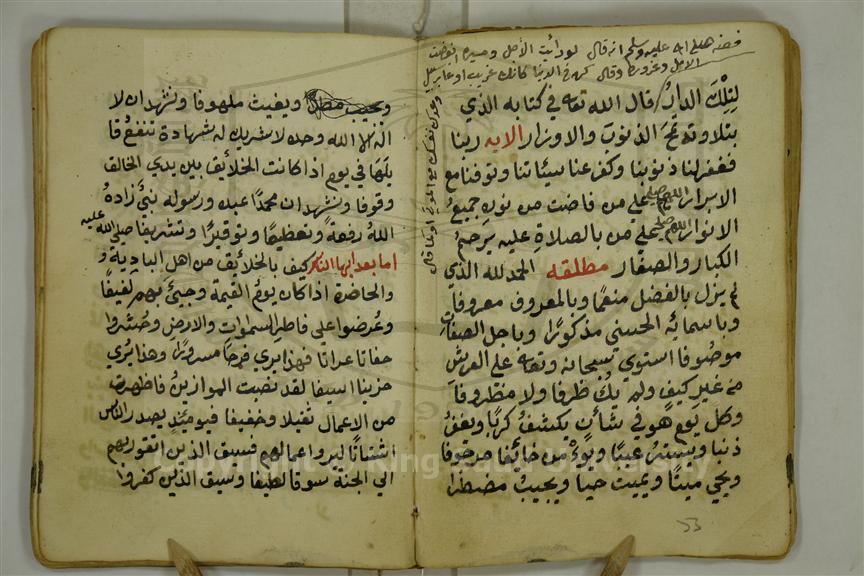 فصه صلى الله عليه وسلم انه قال لو رأيت الأجل ومسيره
الامل وغروره وقال كن في الدنيا كانك غريب او عابر سبيل
لتلك الدار قال الله تعالى في كتابه الذي
بتلاوته تمحى الذنوب والاوزار الايه ربنا
فاغفر لنا ذنوبنا وكفر عنا سيئاتنا وتوفنا مع
الابرار اللهم صلي على من فاضت من نوره جميع
الانوار اللهم صلي على من بالصلاة عليه يرحم
الكبار والصغار مطلقه الحمد لله الذي
لم يزل بالفضل منعما وبالمعروف معروفا
وباسمائه الحسنى مذكورا وباجل الصفات
موصوفا استوى سبحانه وتعالى على العرش
من غير كيف ولم يك ظرفا ولا مظروفا
وكل يوم هو في شأن يكشف كربا ويغفر
ذنبا ويستر عيبا ويؤمن خائفا مرجوفا
ويحي ميتا ويميت حيا ويجيب مضطرا
ويغيث ملهوفا ونشهد ان لا
اله الا الله وحده لا شريك له شهادة تنفع قا
يلها في يوم اذا كانت الخلايق بين يدي الخالق
وقوفا ونشهد ان محمدا عبده ورسوله نبي زاده
الله رفعة وتعظيما وتوقيرا وتشريفا صلى الله عليه
اما بعد ايها الناس كيف بالخلايق من اهل البادية و
والحاضرة اذا كان يوم القيمة وجيئ بهم لفيفا
وعرضوا على فاطر السموات والارض وحشروا
حفاتا عراتا فهذا يرى فرحا مسرورا وهذا يرى
حزينا اسيفا لقد نصبت الموازين فاظهرت
من الاعمال ثقيلا وخفيفا فيومئذ يصدر الناس
اشتاتا ليروا اعمالهم فسيق الذين اتقوا ربهم
الي الجنة سوقا لطيفا وسيق الذين كفروا
Copyright © King Saud University